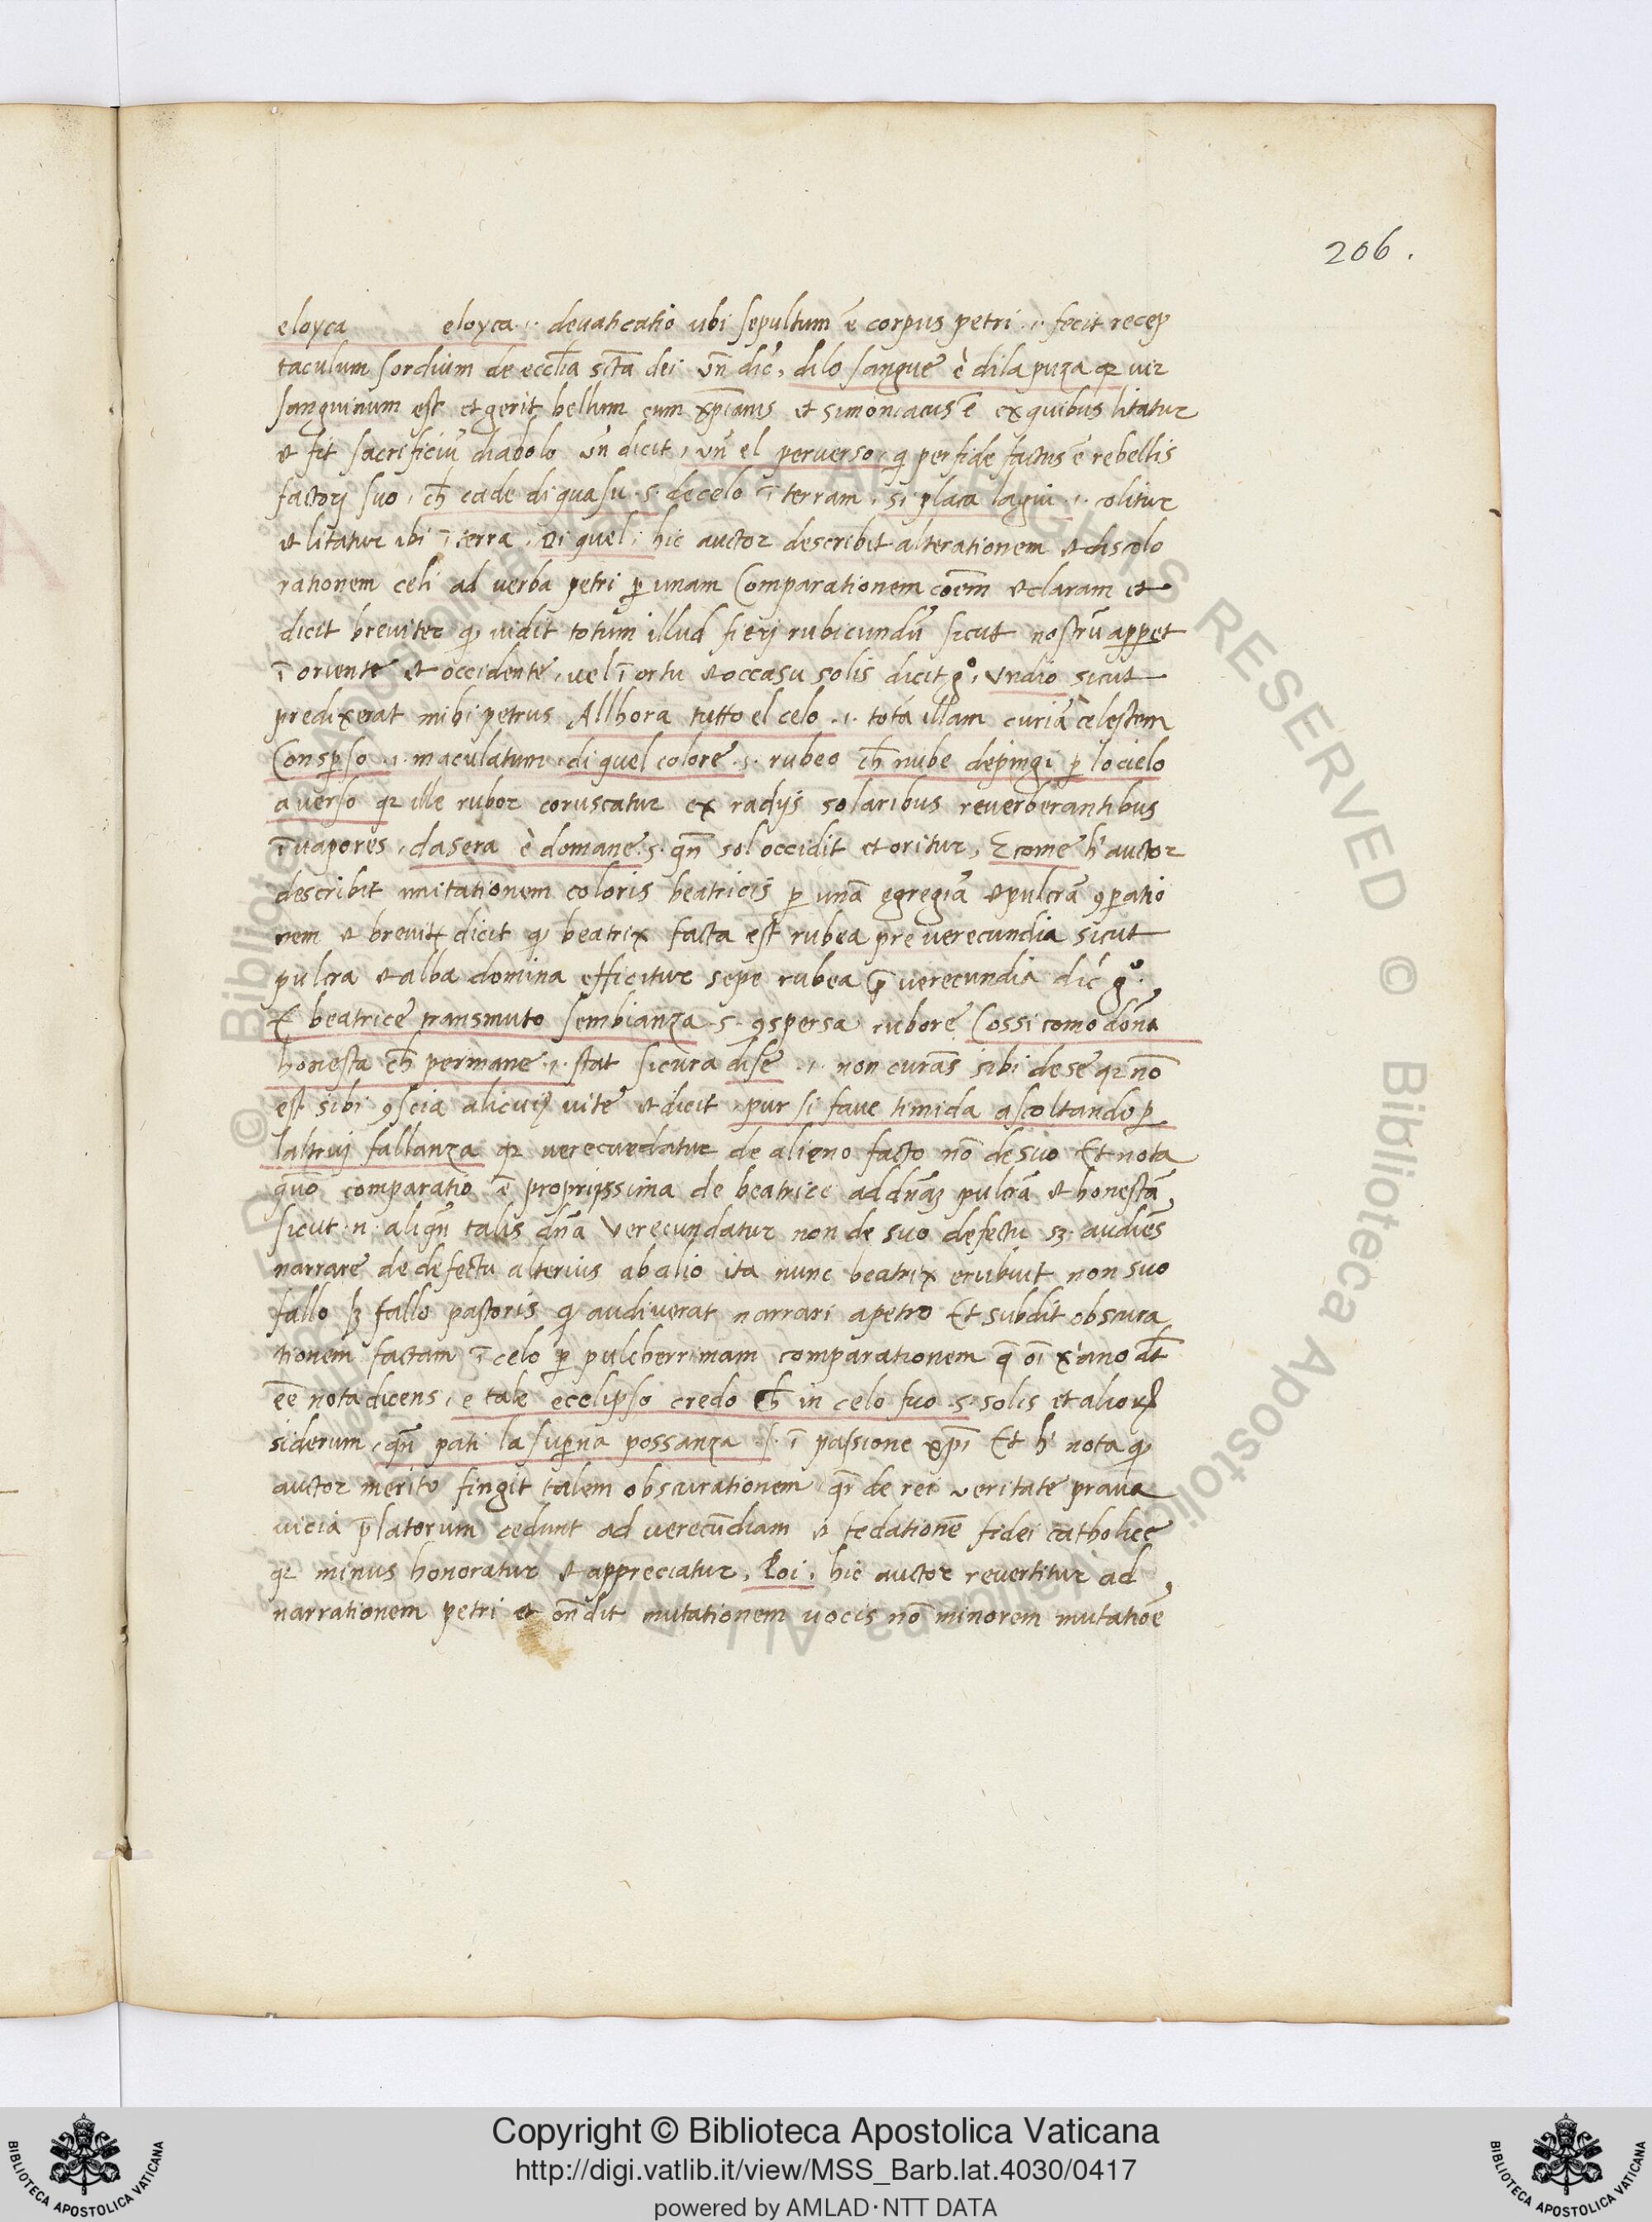 206.
eloyca eloyca .i. deuaticatio ubi sepultum ē corpus petri .i. fecit recep
taculum sordium de eccl̄ia sctā dei vn̄ dic̉, dilo sangue è dila puza qr uir
sanguinum est et gerit bellum cum xp̄ianis et simoniacus ē ex quibus litatur
et fit sacrificiū diabolo vn̄ dicit, vn̄ el peruerso, qͥ perfide factus ē rebellis
factorj suo, ch̄ cade di qua su .s. de celo ī terram, si placa lagiu .i. colitur
et litatur ibi ī terra, Di quel, hic auctor describit alterationem et discolo
rationem celi ad verba petri ꝑ unam Comparationem coēm et claram et
dicit breviter qͥ vidit totum illud fierj rubicundū sicut nostrū apꝑet
ī oriente et occidente, vel ī ortu et occasu solis dicit g°, vndio sicut
predixerat mihi petrus Allhora tutto el celo .i. totā illam curiā celestem
Consꝑso .i. maculatum, di quel colore .s. rubeo ch̄ nube depingi ꝑ lo cielo
auerso qr ille rubor coruscatur ex radijs solaribus reuerberantibus
ī uapores, dasera è domane .s. qn̄ sol occidit et oritur, E come h̉ auctor
describit mutationem coloris beatricis ꝑ unā egregiā et pulcrā 9ꝑatio
nem et breuit̉ dicit qͥ beatrix facta est rubea pre verecundia sicut
pulcra et alba domina efficitur sepe rubea p̄ verecundia dic̉ g°,
E beatrice transmuto sembianza .s. 9spersa rubore Cossi como dōna
honesta ch̄ permane .i. stat sicura dise .i. non curās sibi de se qr nō
est sibi 9scia alicuiꝰ vite et dicit, pur si faue timida ascoltando ꝑ
laltruj fallanza qr verecundatur de alieno facto nō de suo Et nota
quō comparatio ē proprijssima de beatrice ad dn̄aȝ pulcrā et honestā,
sicut .n. aliqn̄ talis dn̄a verecundatur non de suo defectu sȝ audiēs
narrare de defectu alterius ab alio ita nunc beatrix erubuit non suo
fallo sȝ fallo pastoris qͥ audiuerat narrari a petro Et subdit obscura
tionem factam ī celo ꝑ pulcherrimam comparationem q̄ oī x̉ano d̄t
eē nota dicens, e tale ecclipso credo ch̄ in celo fuo .s. solis et alioꝝ
siderum, qn̄ pati la suꝑna possanza .s. ī passione xp̄i Et h̉ nota qͥ
auctor merito fingit talem obscurationem qr̄ de rei veritate praua
vicia p̄latorum cedunt ad verecūdiam et fedationē fidei catholice
qr minus honoratur et appreciatur, Poi, hic auctor reuertitur ad
narrationem petri et on̄dit mutationem vocis nō minorem mutatiōe
Copyright © Biblioteca Apostolica Vaticana
http://digi.vatlib.it/view/MSS_Barb.lat.4030/0417
powered by AMLAD·NTT DATA